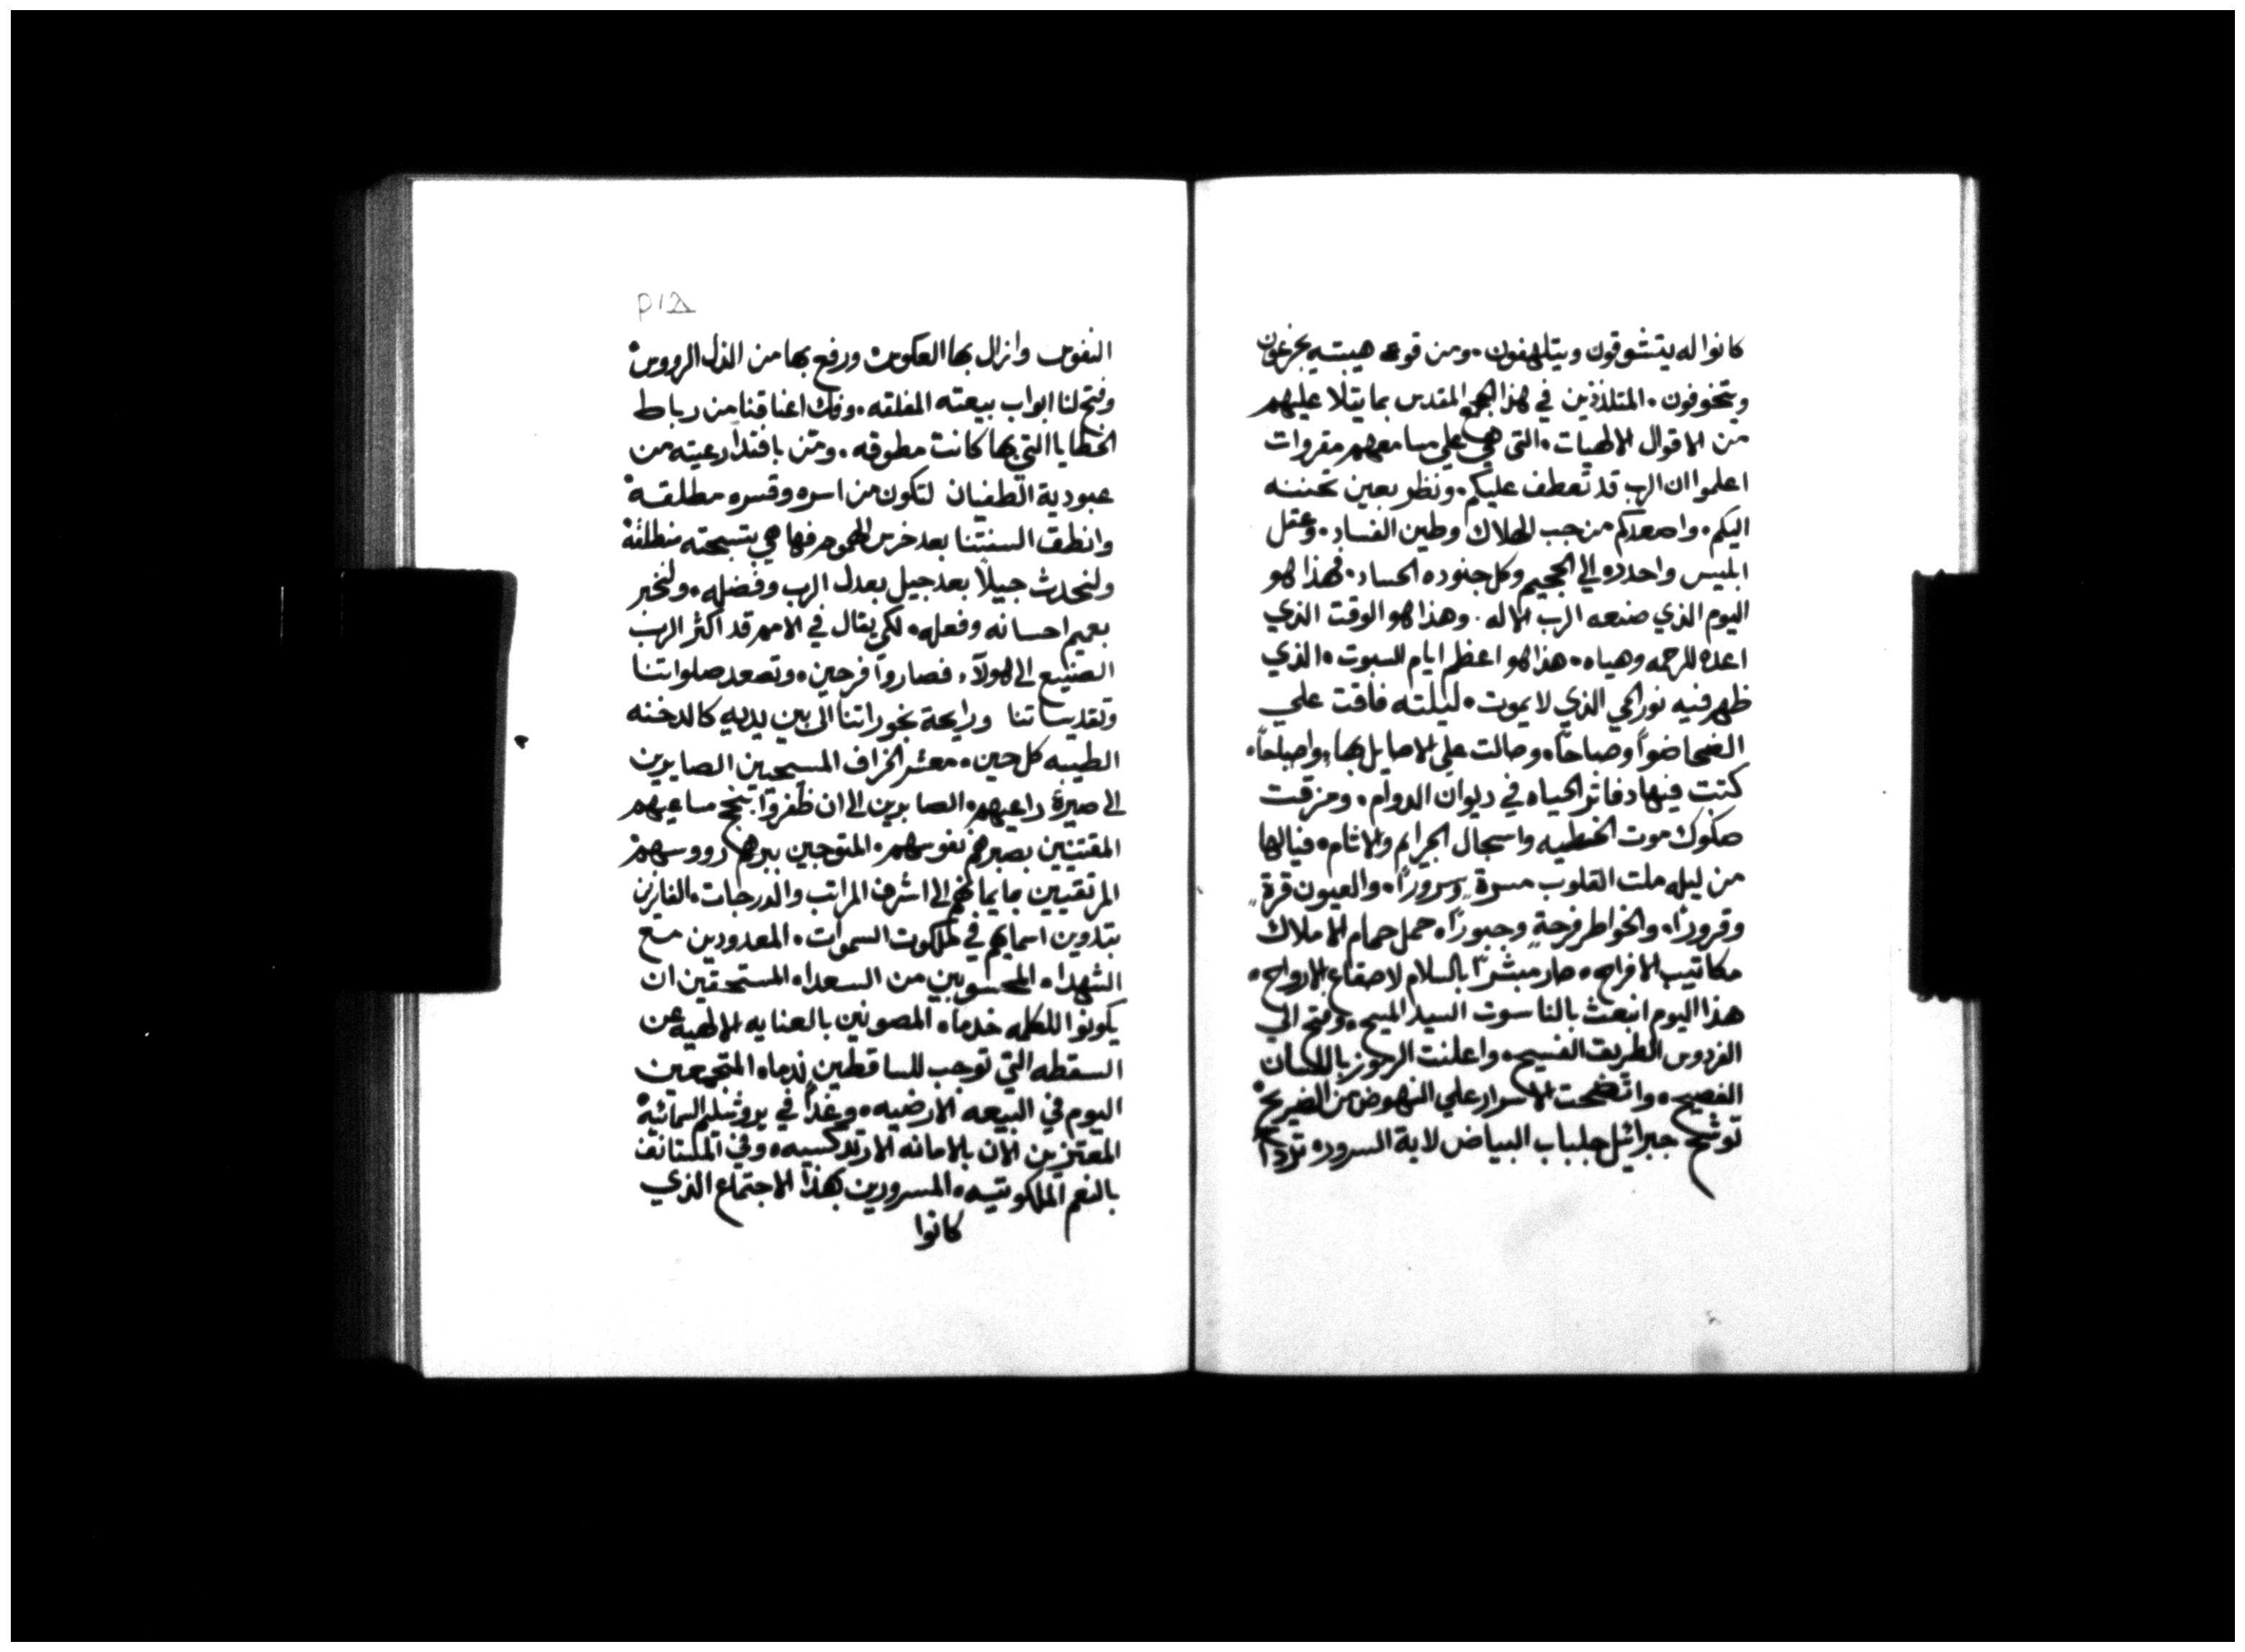 ⲣⲓⲇ
النفوس وانزال بها العكوس ورفع بها من الذل الرووس
وفتح لنا ابواب بيعته المغلقه. وفك اعناقنا من رباط
الخطايا التي بها كانت مطوقه. ومن باقتدا رعيته من
عبودية الطغيان لتكون من اسره وقسره مطلقة
وانطق السنتنا بعد خرس الهموم فها هي بتسبحته منطلقة
ولنحدث جيلاً بعد جيل بعدل الرب وفضله. ولنخبر
بعميم احسانه وفعله. لكي يقال في الامم قد اكثر الرب
الصنيع الي هولآء فصاروا فرحين. وتصعد صلواتنا
وتقديساتنا ورايحة بخوراتنا الى بين يديه كالدخنه
الطيبه كل حين. معشر الخراف المسيحيين الصايرين
الى صيرة راعيهم. الصابرين الى ان ظفروا بنجح مساعيهم
المقتنيين بصبرهم نفوسهم. المتوجين ببرها رووسهم
المرتقيين بايمانهم الى اشرف المراتب والدرجات. الفازين
بتدوين اسمايهم في ملكوت السموات. المعدودين مع
الشهداء المحسوبين من السعداء المستحقين ان
يكونوا للكلمه خدماء المصونين بالعنايه الالهيه عن
السقطه التي توجب للساقطين ندماء المتجمعين
اليوم في البيعه الارضيه. وغداً في يروشليم السمائية
المعتزين الان بالامانه الارتدكسيه. وفي المستانف
بالنعم الملكوتيه. المسرورين بهذا الاجتماع الذي
كانوا
كانوا له يتشوقون ويتلهفون. ومن قوة هيبته يجزعون
ويتخوفون. المتلذذين في هذا الجمع المقدس بما يتلا عليهم
من الاقوال الالهيات. التي هي علي مسامعهم مقروات
اعلموا ان الرب قد تعطف عليكم. ونظر بعين تحننه
اليكم. واصعدكم من جب الهلاك وطين الفساد. وغتل
ابليس واحدره الي الجحيم وكل جنوده الحساد. فهذا هو
اليوم الذي صنعه الرب الاله. وهذا هو الوقت الذي
اعده للرحمه وهياه. هذا هو اعظم ايام السبوت. الذي
ظهر فيه نور الحي الذي لا يموت. ليلته فاقت علي
الضحا ضواً وصباحاً. وصالت علي الاصايل بها واصباحاً.
كتبت فيها دفاتر الحياه في ديوان الدوام. ومزقت
صكوك موت الخطيه واسجال الجرايم والاثام. فيالها
من ليله ملت القلوب مسرة وسروراً. والعيون قرة
وقروراً. والخواطر فرحة وحبوراً. حمل حمام الاملاك
مكاتيب الافراح. صار مبشراً بالسلام لاصقاع الارواح.
هذا اليوم انبعث بالناسوت السيد المسيح. وفتح الي
الفردوس الطريق الفسيح. واعلنت الرموز باللسان
الفصيح. واتضحت الاسرار علي النهوض من الضريح
توشح جبرائيل جلباب البياض لاية السرور.